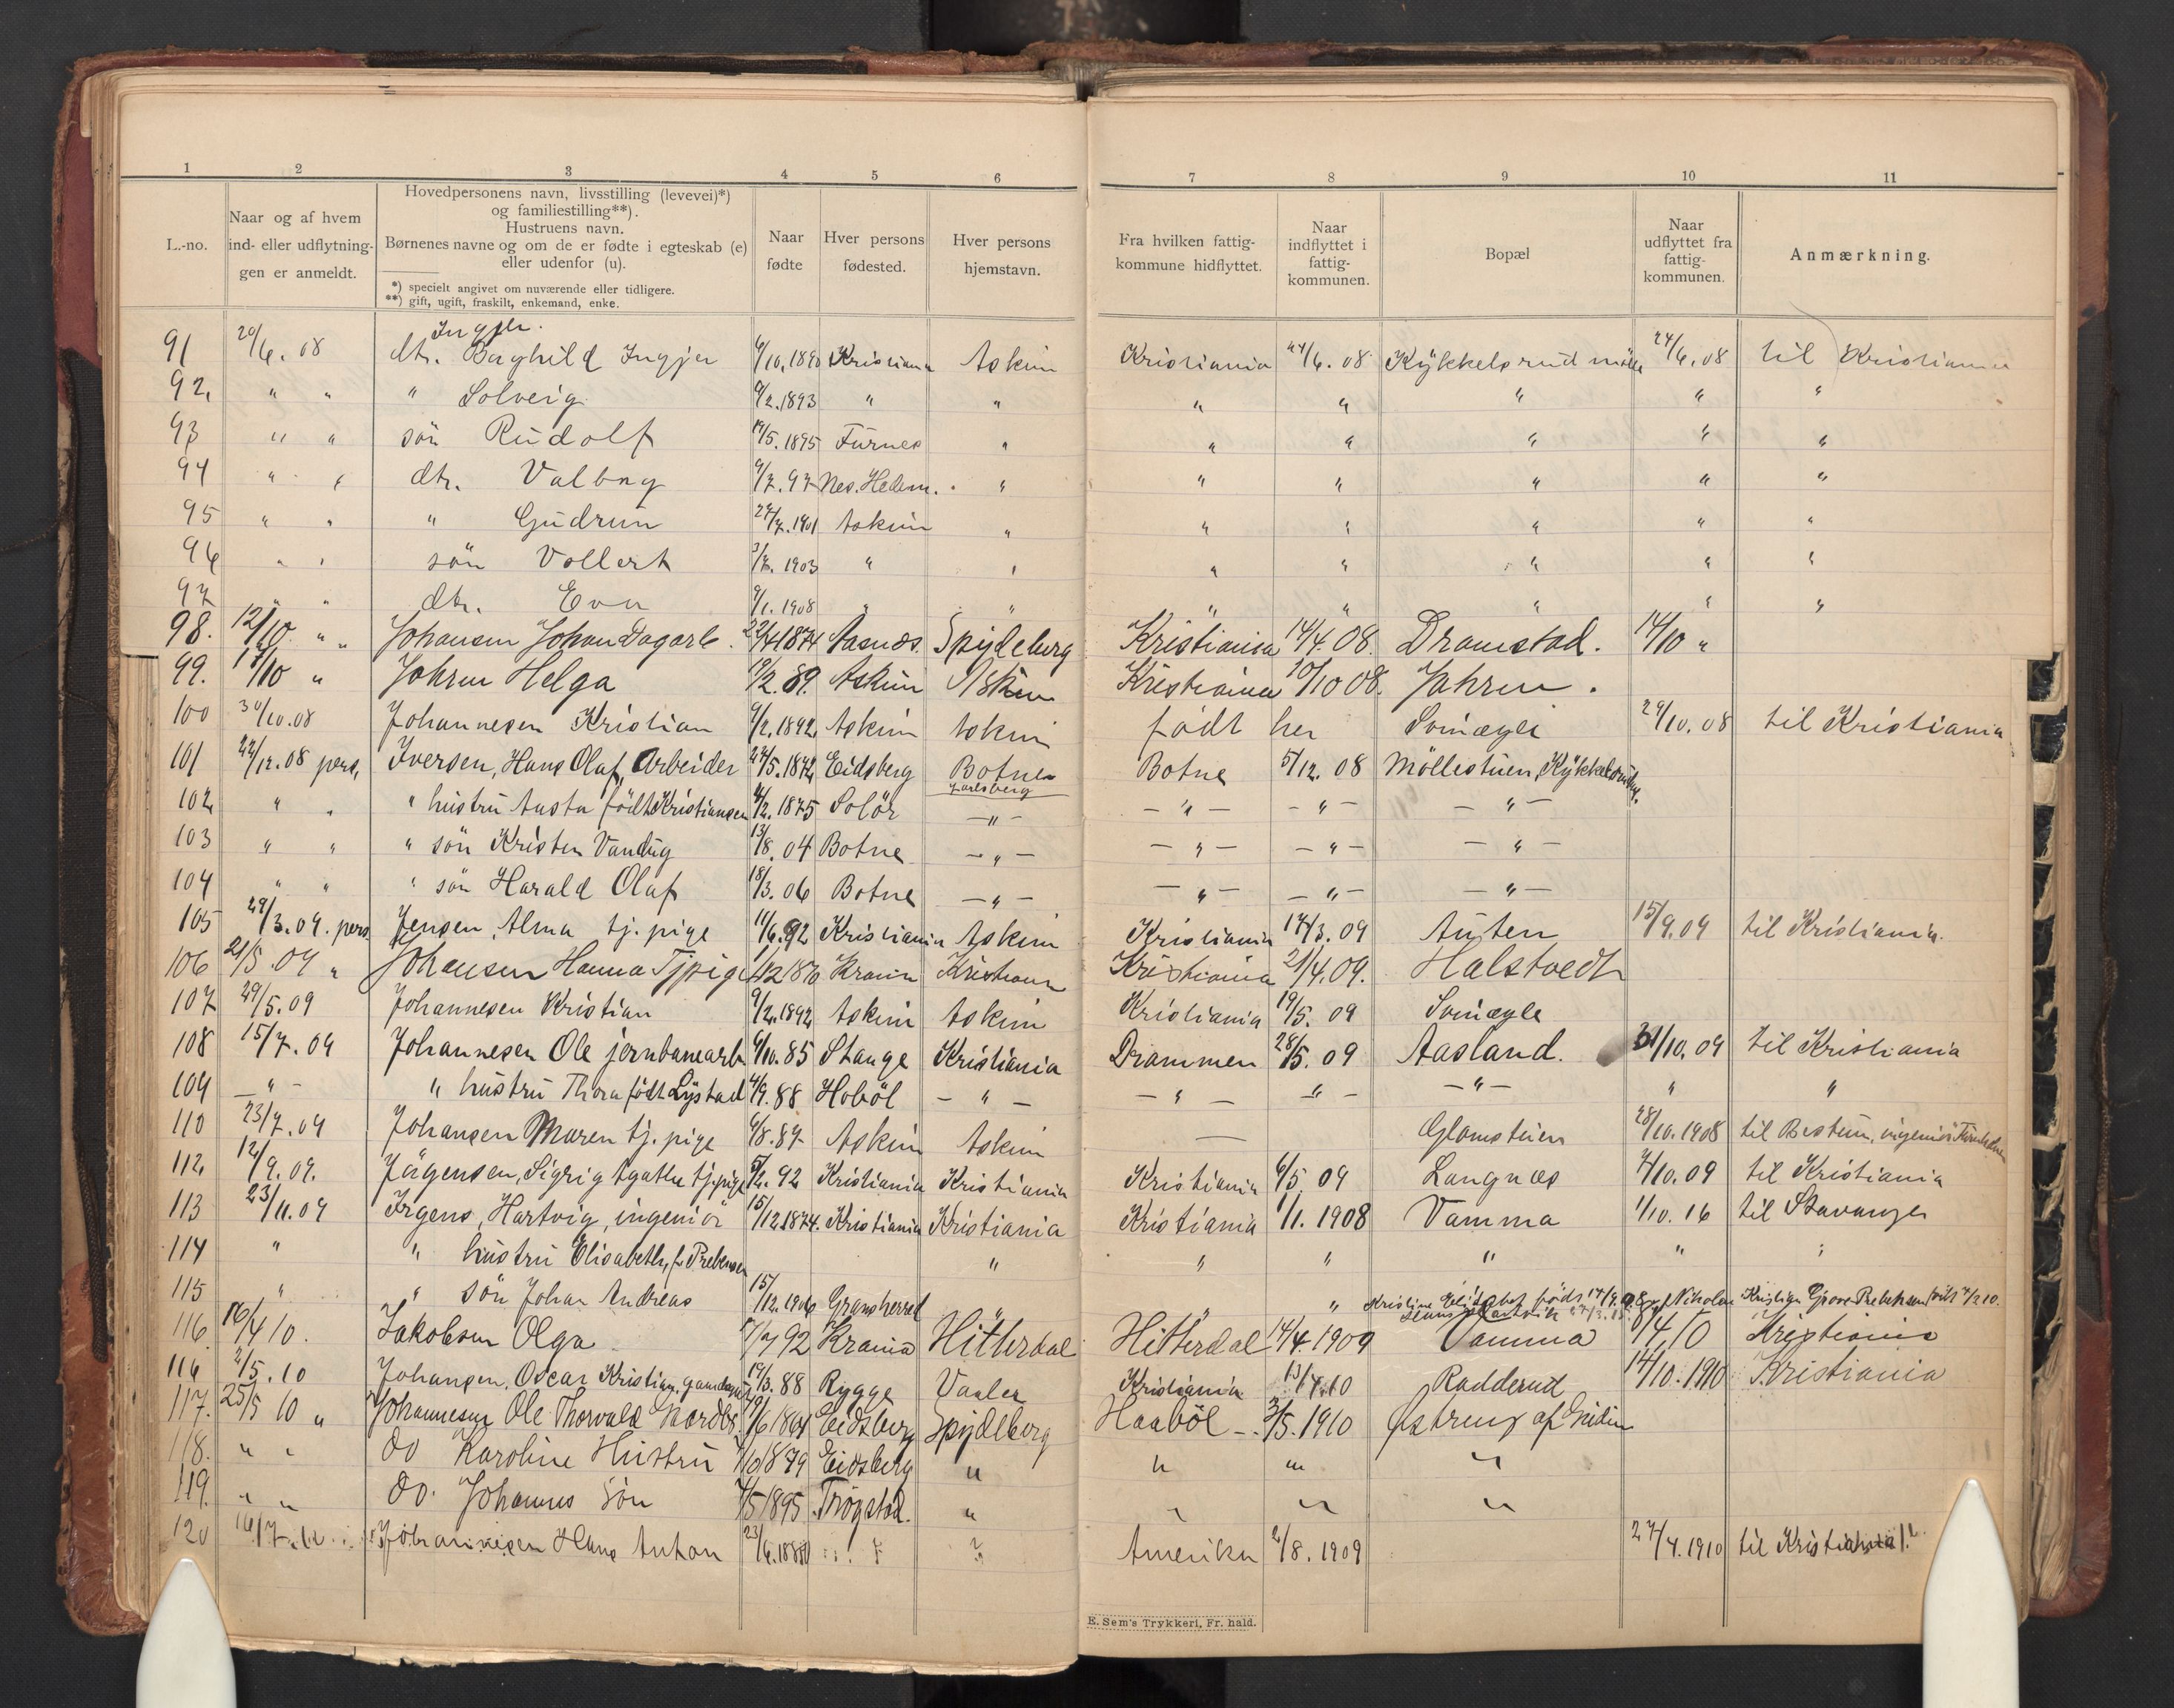 1 2 3 4 5 6 7 8 9 10 11
L.-no.
Naar og af hvem
ind- eller udflytnin-
gen er anmeldt.
Hovedpersonens navn, livsstilling (levevei)*)
og familiestilling**).
Hustruens navn.
Børnenes navne og om de er fødte i egteskab (e)
eller udenfor (u).
*) specielt angivet om nuværende eller tidligere.
**) gift, ugift, fraskilt, enkemand, enke.
Naar
fødte
Hver persons
fødested.
Hver persons
hjemstavn.
Fra hvilken fattig-
kommune hidflyttet.
Naar
indflyttet i
fattig-
kommunen.
Bopæl
Naar
udflyttet fra
fattig-
kommunen.
Anmærkning.
Ingjer.
91 20/6. 08 dtr. Borghild Ingjer 6/10.1890 Kristiania Askim Kristiania 24/6. 08 Kykkelsrud mølle 24/6.08 til Kristiania
92. " " " Solveig 9/2.1893 " " " " " " "
93 " " søn Rudolf 19/5.1895 Furnes " " " " " "
94 " " dtr. Valborg 9/7.97 Nes. Hedem. " " " " " "
95 " " " Gudrun 27/7.1901 Askim " " " " " "
96 " " søn Vollert 3/7.1903 " " " " " " "
97 " " dtr. Eva 9/1.1908 " " " " " " "
98. 12/10 " " Johansen Johan Dagarb. 22/4 1874 Aasnæs. Spydeberg Kristiania 14/4.08. Dramstad. 14/10 "
99. 17/10 " Johren Helga 19/2.89. Askim Askim Kristiania 10/10 08. Jahren.
100 30/10.08 Johannesen Kristian 9/2.1892 Askim Askim født her Svinægle 29/10.08 til Kristiania
101 22/12.08 pers, Iversen, Hans Olaf, Arbeider 24/5.1872 Eidsberg Botne Jarlsberg Botne 5/12. 08 Møllestuen, Kykkelsrud.
102 " " " hustru Aasta født Kristiansen 4/2.1875 Solør — " — — " — — " — — " —
103 " " " søn Kristen Vandug 13/8.04 Botne — " — — " — — " — — " —
104 " " " søn Harald Olaf 18/3.06 Botne — " — — " — — " — — " —
105 29/3.09. pers Jensen, Alma tj. pige 11/6.92 Kristiania Askim Kristiania 17/3.09 Auten 15/9.09 til Kristiania.
106 21/5.09 " Johansen Hanna Tjpige 1/12 1870 Krania Kristiania Kristiania 21/4.09. Halstvedt
107 29/5.09 Johannesen Kristian 9/2.1892 Askim Askim Kristiania 19/5. 09 Svinægle
108 15/7.09 Johannesen Ole jernbanearb 9/10.85 Stange Kristiania Drammen 28/5.09 Aasland. 31/10.09 til Kristiania
109 — " — " hustru Thora født Lystad 4/9.88 Hobøl — " — — " — — " — — " — " "
110 23/7.09 Johansen Maren tj. pige 6/8.87 Askim Askim — Glomstuen 28/10.1908 til Bestum, ingeniør
112. 12/9.09. Jørgensen, Sigrig Agathe tj.pige 5/2.92 Kristiania Kristiania Kristiania 6/5 09 Langnæs 4/10.09 til Kristiania
113 23/11.09 Irgens, Hartvig, ingeniør 15/12.1874. Kristiania Kristiania Kristiania 1/1.1908 Vamma 1/10.16 til Stavanger
114 " " hustru Elisabeth, f. Prebensen " " " " " "
115 " " søn Johan Andreas 15/12.1906 Gransherred " Kristine Elisabet født 17/9.08 Nikolai Kristian Groos Prebensen født 4/2 10.
116. 16/4 10. Jakobsen Olga 17/7 92 Krania Hitterdal Hitterdal 14/4.1909 Vamma 9/4.10 Kristiania
116 2/5.10 Johansen, Oscar Kristian, gaardsgut 19/3.88 Rygge Vaaler Kristiania 13/4.10 Radderud 14/10.1910 Kristiania
117. 25/5 10 " Johannesen Ole Thorvald Nordby 19/6 1864 Eidsberg Spydeberg Haabøl — 3/5.1910 Østreng af Grudim
118. " " do Karoline Hustru 1/10 1879 Eidsberg " " " "
119. " " do. Johannes Søn 7/5 1895 Trøgstad. " " " "
120 16/7.10 Johannesen Hans Anton 23/6.1888 ? ? Amerika 2/8.1909 27/4.1910 til Kristiania!
E. Sem's Trykkeri, Fr. hald.